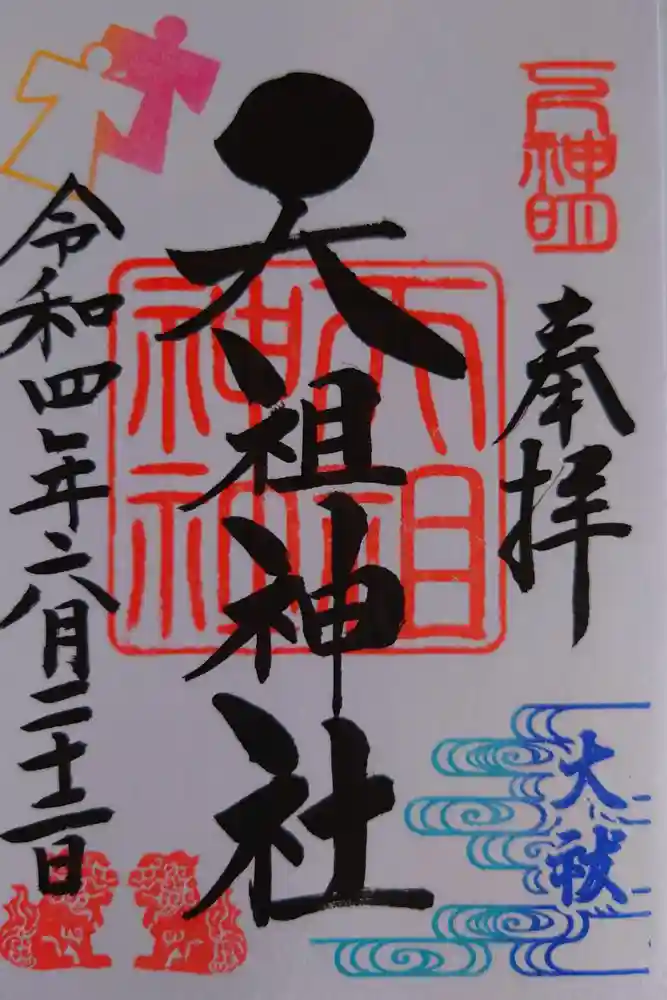 下神明
奉拝
天祖神社
天祖神社
令和四年六月二十二日
大祓